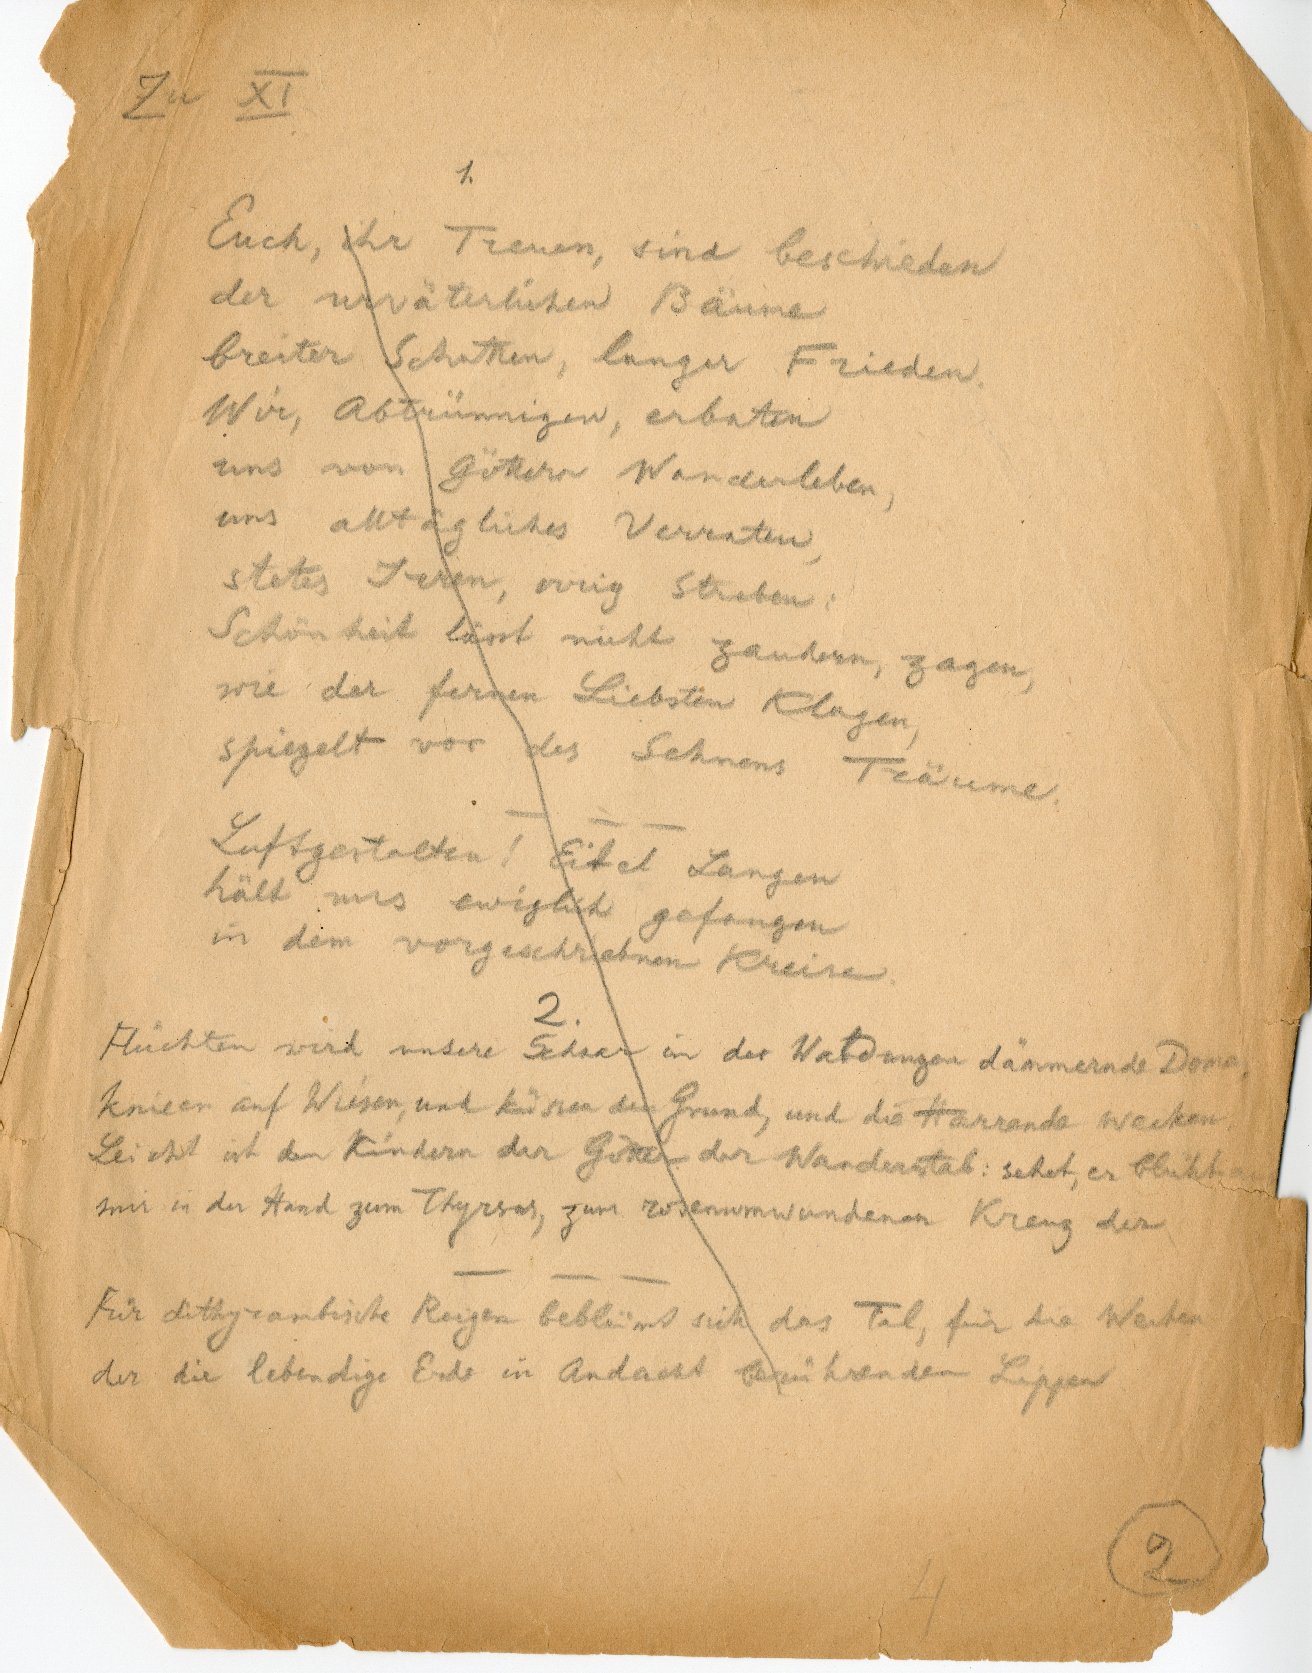 Zu XI
1.
Euch, ihr Treuen, sind beschieden
der urväterlichen Bäume
breiter Schatten, langer Frieden.
Wir, Abtrünnigen, erbaten
uns von Göttern Wanderleben,
uns alltägliches Verraten,
stetes Irren, ewig Streben:
Schönheit lässt nicht zaudern, zagen,
wie der fernen Liebsten Klagen,
spiegelt vor des Sehnens Träume.
Luftgestalten! Eitel Langen
hält uns ewiglich gefangen
in dem vorgeschriebnen Kreise.
2.
Flüchten wird unsere Schaar in der Waldungen dämmernde Dome,
knieen auf Wiesen, und küssen den Grund, und die Harrende wecken.
Leicht ist den Kindern der Götter der Wanderstab: sehet, er blüht
mir in der Hand zum Thyrsos, zum rosenumwundenen Kreuz der
Für dithyrambische Reigen beblümt sich das Tal, für die
der die lebendige Erde in Andacht berührenden Lippen
2
4